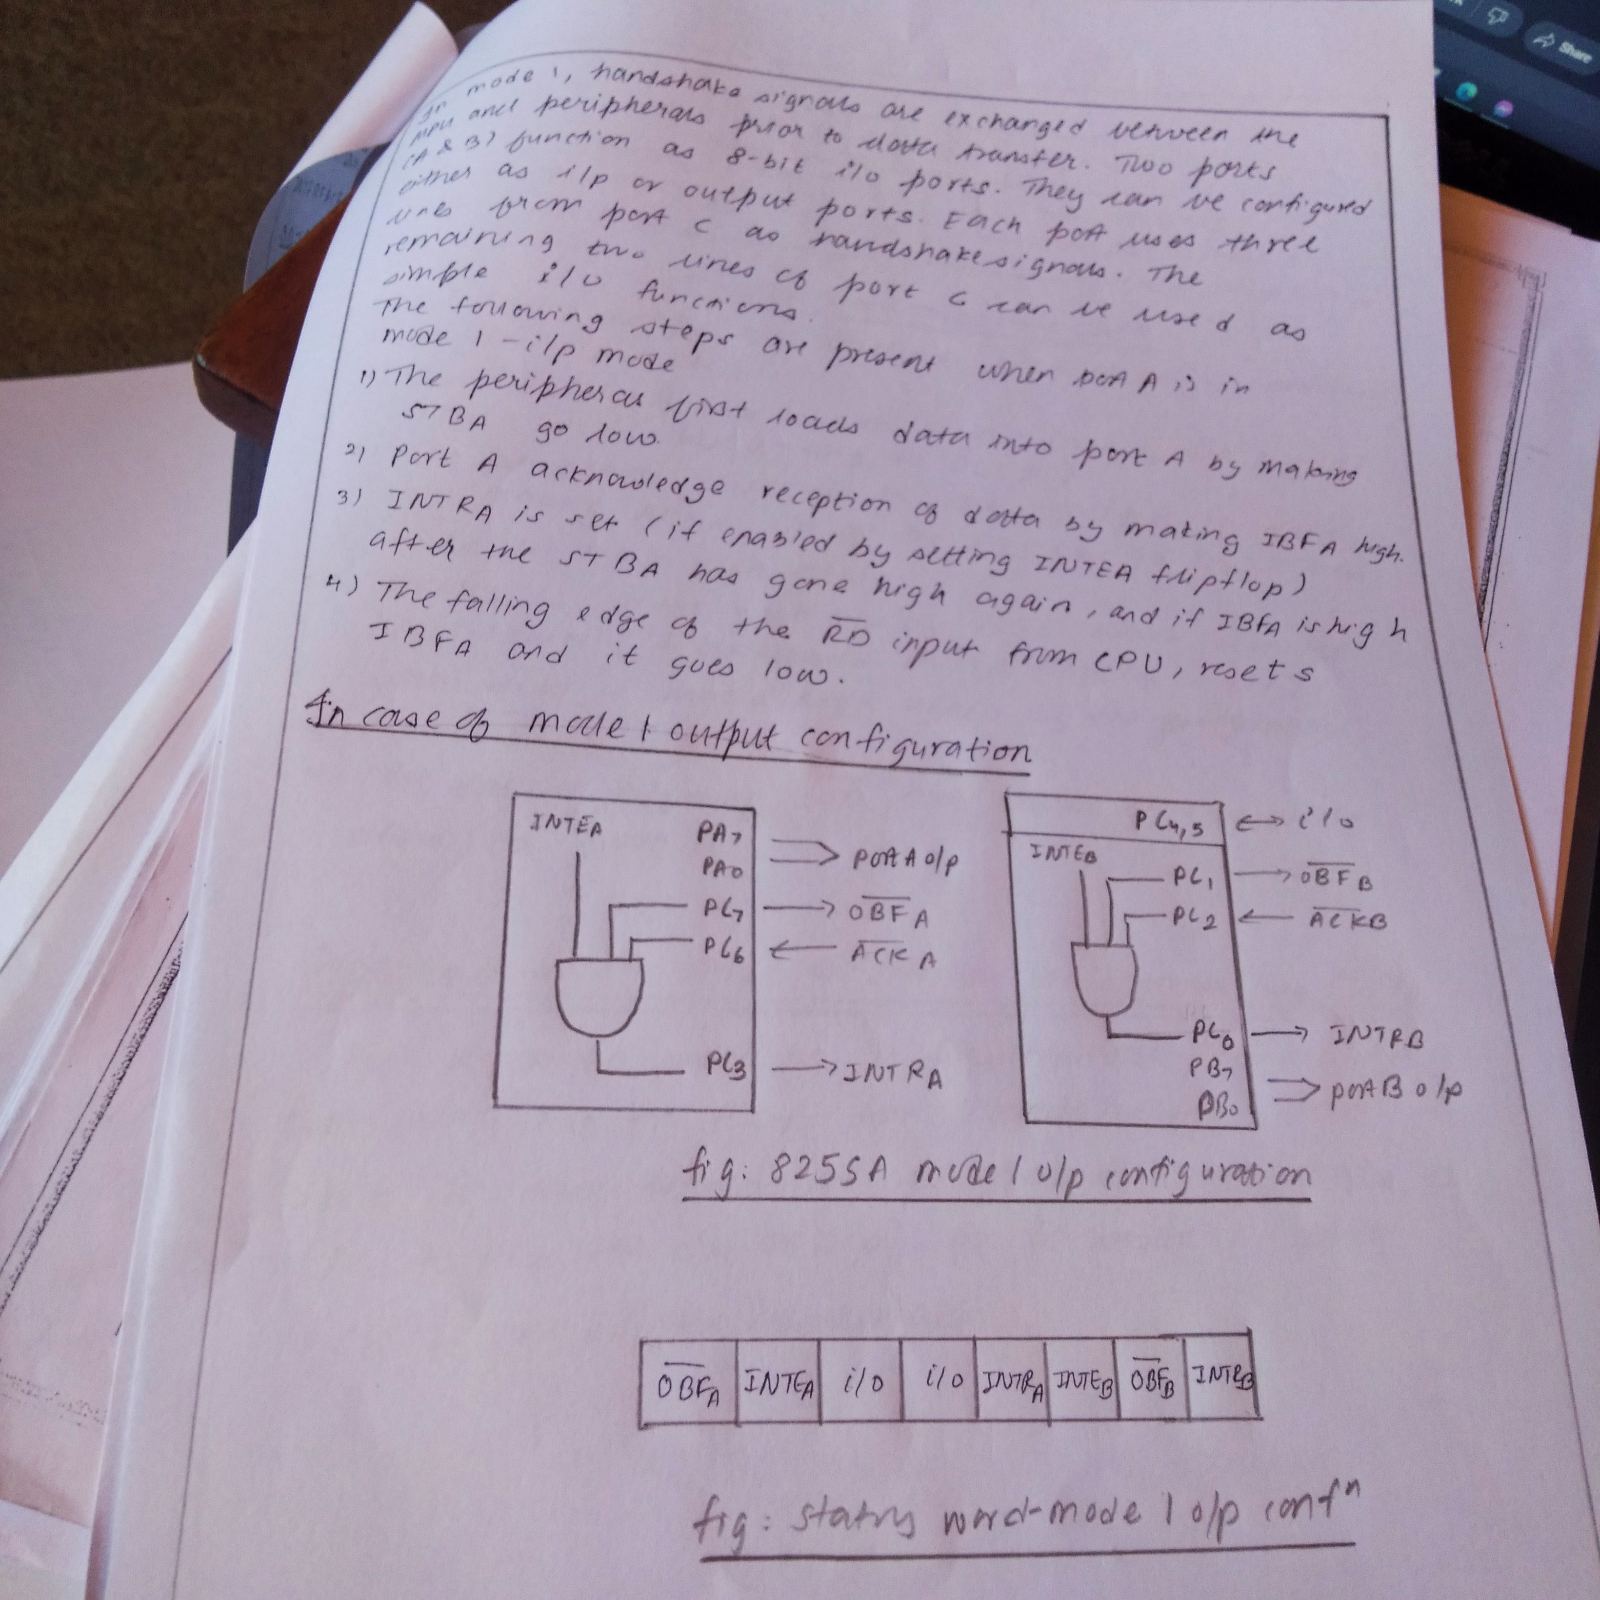 In mode 1, handshake signals are exchanged between the
MPU and peripherals prior to data transfer. Two ports
(A & B) function as 8-bit i/o ports. They can be configured
either as i/p or output ports. Each port uses three
lines from port C as handshake signals. The
remaining two lines of port C can be used as
simple i/o functions.
The following steps are present when port A is in
mode 1 - i/p mode
1) The peripheral first loads data into port A by making
STBA go low.
2) Port A acknowledge reception of data by making IBFA high.
3) INTRA is set (if enabled by setting INTEA flipflop)
after the STBA has gone high again, and if IBFA is high
4) The falling edge of the R̅D̅ input from CPU, resets
IBFA and it goes low.
In case of mode 1 output configuration
INTEA
PA7
PA0
port A o/p
PC7
O̅B̅F̅A
PC6
A̅C̅K̅A
PC3
INTRA
PC4,5
i/o
INTEB
PC1
O̅B̅F̅B
PC2
A̅C̅K̅B
PC0
INTRB
PB7
PB0
port B o/p
fig: 8255A mode 1 o/p configuration
O̅B̅F̅A INTEA i/o i/o INTRA INTEB O̅B̅F̅B INTRB
fig: status word-mode 1 o/p confⁿ